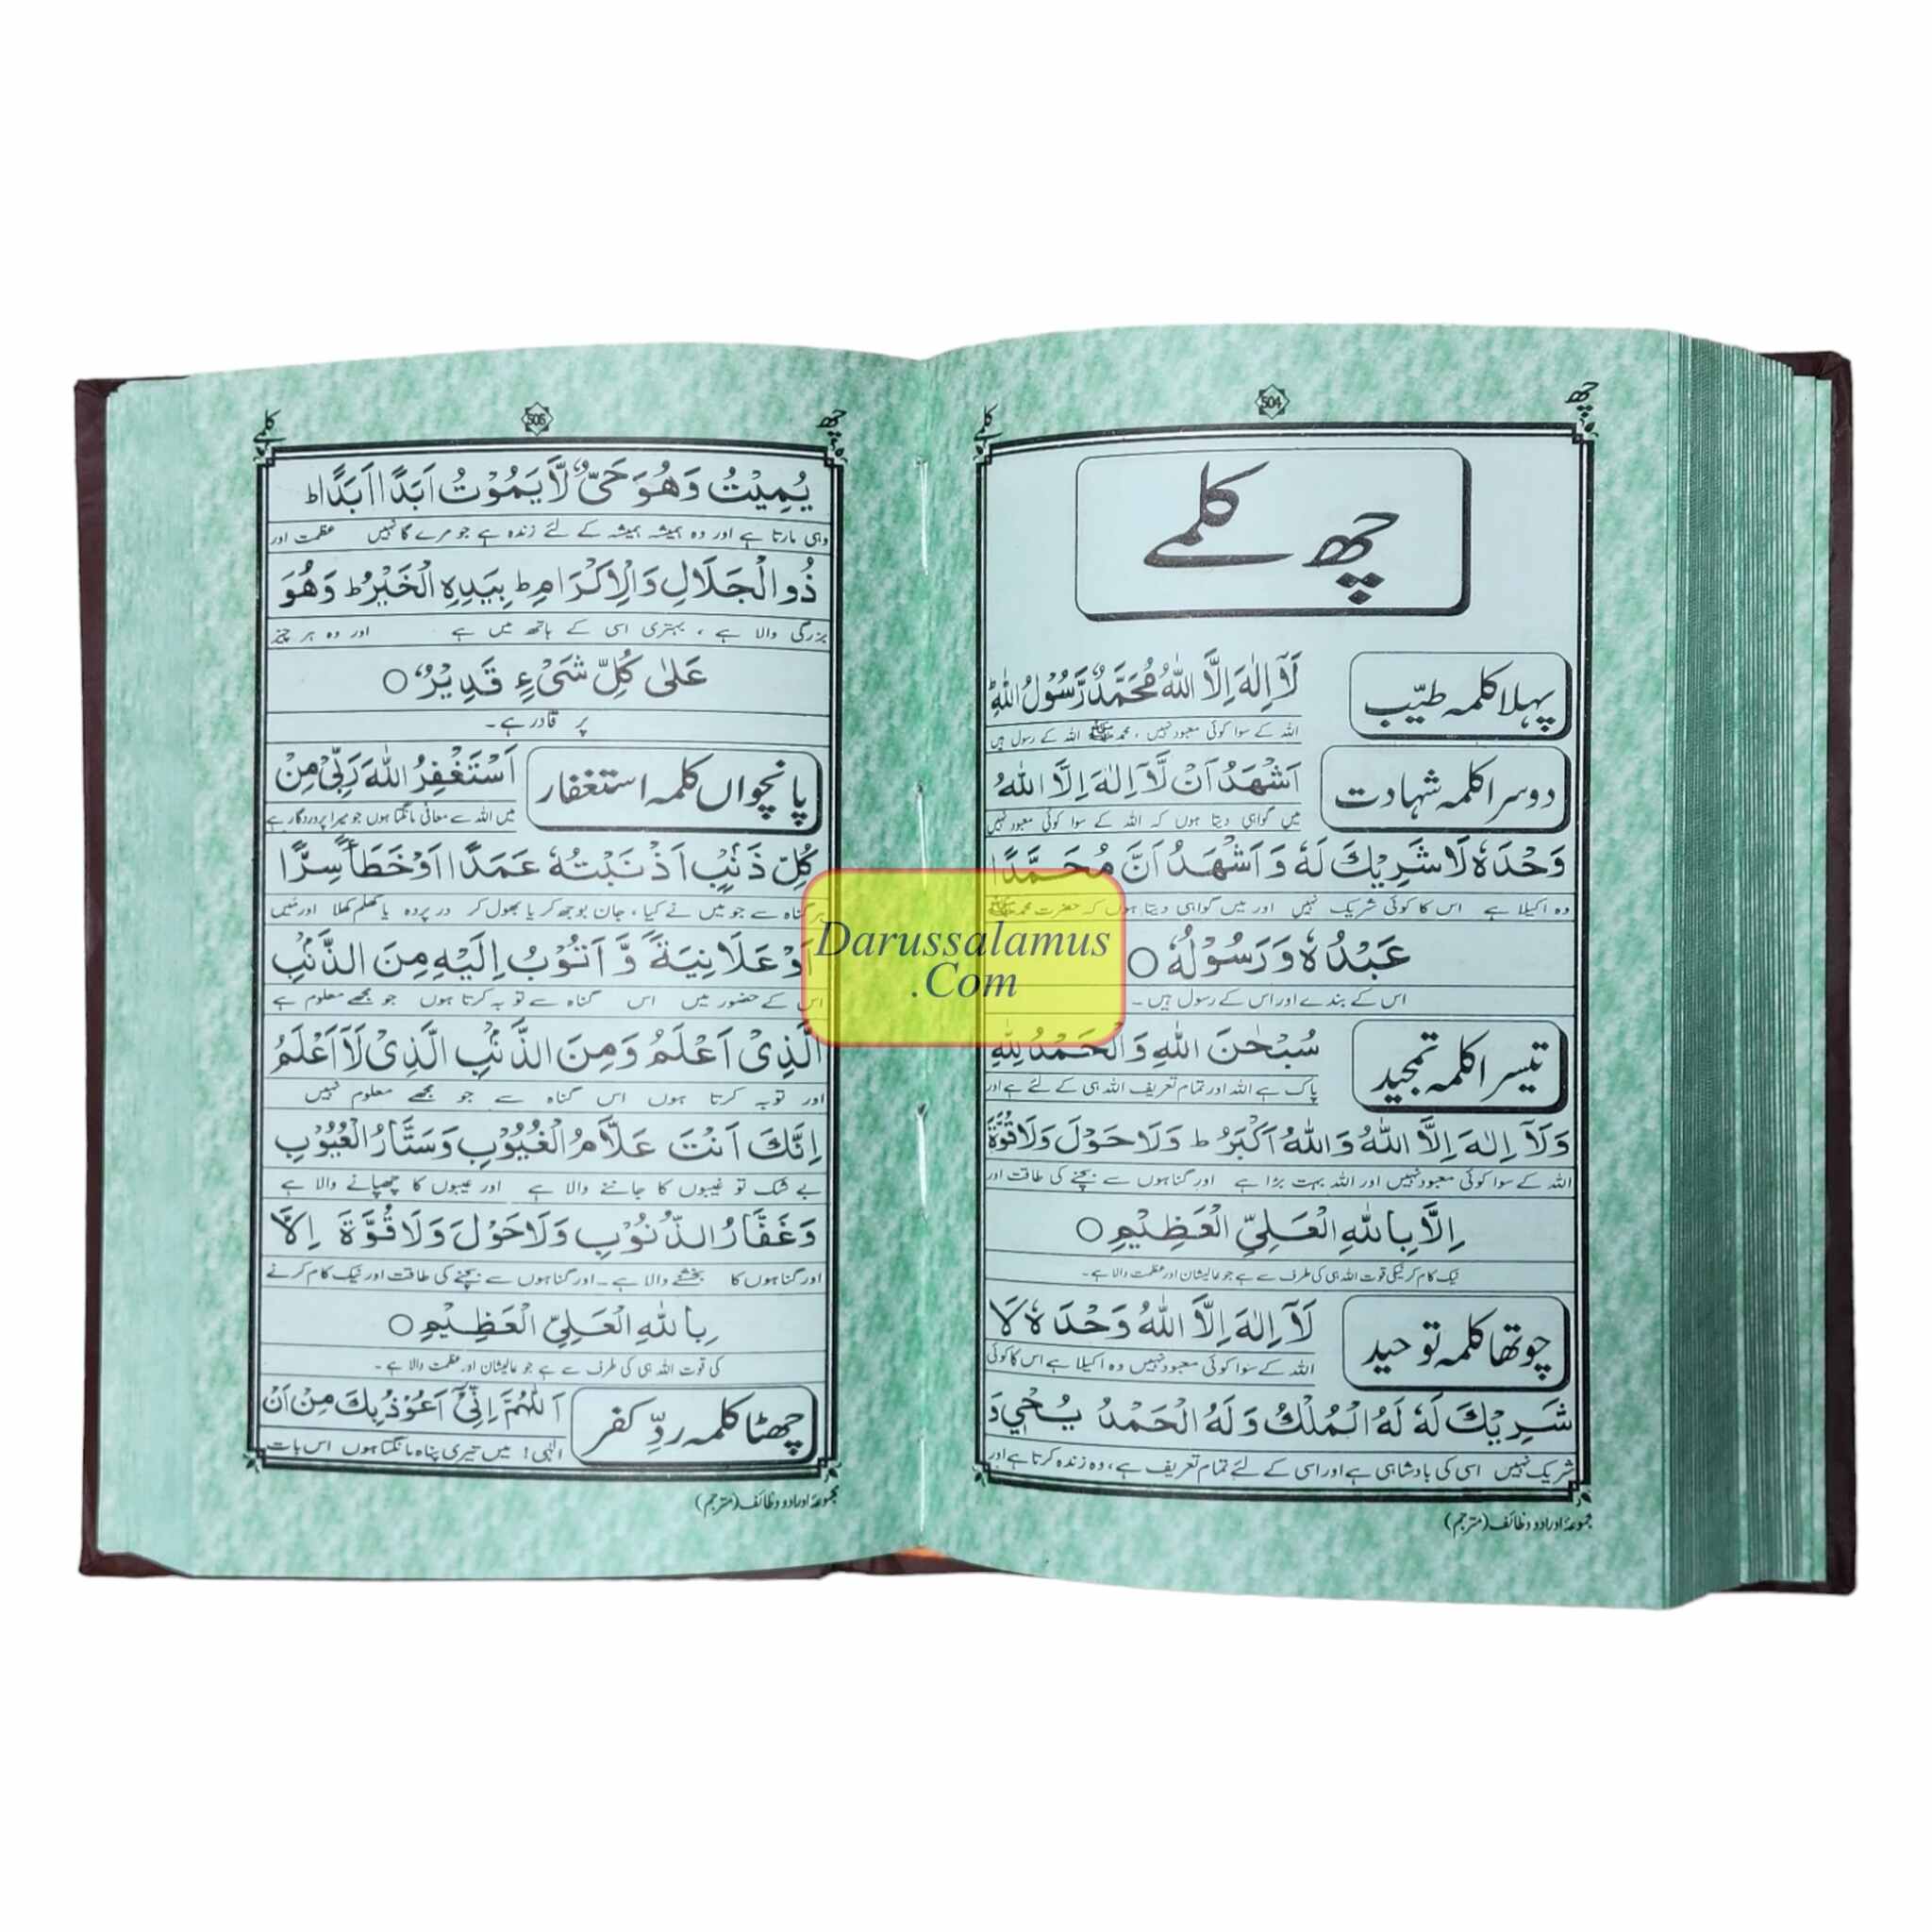 چھ
504
کلمے
چھ کلمے
پہلا کلمہ طیّب
لَآ اِلٰهَ اِلَّا اللّٰهُ مُحَمَّدٌ رَّسُوْلُ اللّٰهِ
اللہ کے سوا کوئی معبود نہیں ، محمد ﷺ اللہ کے رسول ہیں
دوسرا کلمہ شہادت
اَشْهَدُ اَنْ لَّآ اِلٰهَ اِلَّا اللّٰهُ
میں گواہی دیتا ہوں کہ اللہ کے سوا کوئی معبود نہیں
وَحْدَهٗ لَا شَرِيْكَ لَهٗ وَ اَشْهَدُ اَنَّ مُحَمَّدًا
وہ اکیلا ہے اس کا کوئی شریک نہیں اور میں گواہی دیتا ہوں کہ حضرت محمد ﷺ
عَبْدُهٗ وَ رَسُوْلُهٗ ○
اس کے بندے اور اس کے رسول ہیں ۔
تیسرا کلمہ تمجید
سُبْحٰنَ اللّٰهِ وَ الْحَمْدُ لِلّٰهِ
پاک ہے اللہ اور تمام تعریف اللہ ہی کے لئے ہے اور
وَلَآ اِلٰهَ اِلَّا اللّٰهُ وَ اللّٰهُ اَكْبَرُ ط وَلَا حَوْلَ وَلَا قُوَّةَ
اللہ کے سوا کوئی معبود نہیں اور اللہ بہت بڑا ہے اور گناہوں سے بچنے کی طاقت اور
اِلَّا بِاللّٰهِ الْعَلِيِّ الْعَظِيْمِ ○
نیک کام کرنیکی قوت اللہ ہی کی طرف سے ہے جو عالیشان اور عظمت والا ہے۔
چوتھا کلمہ توحید
لَآ اِلٰهَ اِلَّا اللّٰهُ وَحْدَهٗ لَا
اللہ کے سوا کوئی معبود نہیں وہ اکیلا ہے اس کا کوئی
شَرِيْكَ لَهٗ لَهُ الْمُلْكُ وَ لَهُ الْحَمْدُ يُحْيٖ وَ
شریک نہیں اسی کی بادشاہی ہے اور اسی کے لئے تمام تعریف ہے، وہ زندہ کرتا ہے اور
مجموعۂ اوراد و وظائف (مترجم)
چھ
505
کلمے
يُمِيْتُ وَ هُوَ حَيٌّ لَّا يَمُوْتُ اَبَدًا اَبَدًا ط
وہی مارتا ہے اور وہ ہمیشہ ہمیشہ کے لئے زندہ ہے جو مرے گا نہیں عظمت اور
ذُو الْجَلَالِ وَالْاِكْرَامِ ط بِيَدِهِ الْخَيْرُ ط وَهُوَ
بزرگی والا ہے ، بہتری اسی کے ہاتھ میں ہے اور وہ ہر چیز
عَلٰى كُلِّ شَيْءٍ قَدِيْرٌ ○
پر قادر ہے ۔
پانچواں کلمہ استغفار
اَسْتَغْفِرُ اللّٰهَ رَبِّيْ مِنْ
میں اللہ سے معافی مانگتا ہوں جو میرا پروردگار ہے
كُلِّ ذَنْبٍ اَذْنَبْتُهٗ عَمَدًا اَوْ خَطَأً سِرًّا
ہر گناہ سے جو میں نے کیا ، جان بوجھ کر یا بھول کر در پردہ یا کھلم کھلا اور میں
اَوْ عَلَانِيَةً وَّ اَتُوْبُ اِلَيْهِ مِنَ الذَّنْبِ
اس کے حضور میں اس گناہ سے توبہ کرتا ہوں جو مجھے معلوم ہے
الَّذِيْ اَعْلَمُ وَ مِنَ الذَّنْبِ الَّذِيْ لَآ اَعْلَمُ
اور توبہ کرتا ہوں اس گناہ سے جو مجھے معلوم نہیں
اِنَّكَ اَنْتَ عَلَّامُ الْغُيُوْبِ وَ سَتَّارُ الْعُيُوْبِ
بے شک تو غیبوں کا جاننے والا ہے اور عیبوں کا چھپانے والا ہے
وَ غَفَّارُ الذُّنُوْبِ وَلَا حَوْلَ وَلَا قُوَّةَ اِلَّا
اور گناہوں کا بخشنے والا ہے ۔ اور گناہوں سے بچنے کی طاقت اور نیک کام کرنے
بِاللّٰهِ الْعَلِيِّ الْعَظِيْمِ ○
کی قوت اللہ ہی کی طرف سے ہے جو عالیشان اور عظمت والا ہے ۔
چھٹا کلمہ ردِّ کفر
اَللّٰهُمَّ اِنِّيْٓ اَعُوْذُ بِكَ مِنْ اَنْ
الٰہی! میں تیری پناہ مانگتا ہوں اس بات
مجموعۂ اوراد و وظائف (مترجم)
Darussalamus
.Com